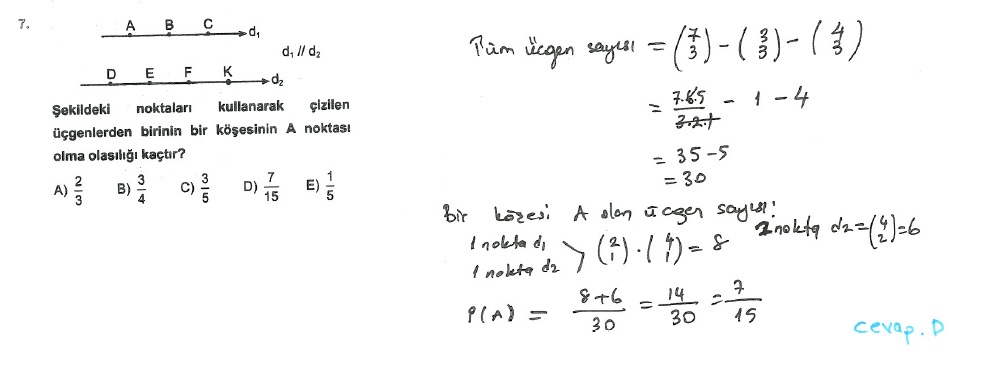 7.
A B C d₁
d₁ // d₂
D E F K d₂
Şekildeki noktaları kullanarak çizilen
üçgenlerden birinin bir köşesinin A noktası
olma olasılığı kaçtır?
A) 2/3 B) 3/4 C) 3/5 D) 7/15 E) 1/5
Tüm üçgen sayısı = (7 3) - (3 3) - (4 3)
= 7.6.5/3.2.1 - 1 - 4
= 35 - 5
= 30
Bir köşesi A olan üçgen sayısı:
1 nokta d₁
1 nokta d₂ (2 1) . (4 1) = 8
2 nokta d₂ = (4 2) = 6
P(A) = 8+6/30 = 14/30 = 7/15
cevap. D